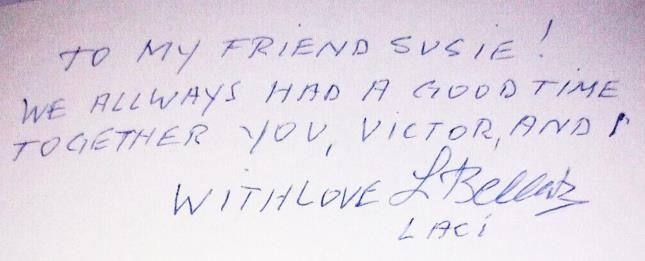 TO MY FRIEND SUSIE!
WE ALLWAYS HAD A GOOD TIME
TOGETHER YOU, VICTOR, AND I
WITH LOVE
LACI